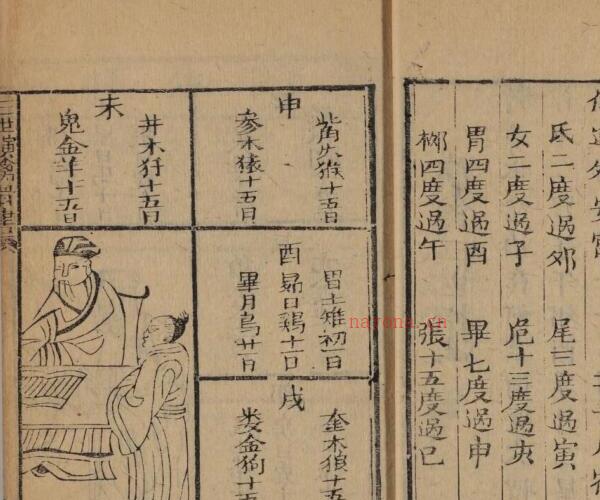 氐二度過卯　尾三度過寅
女二度過子　危十三度過亥
胃四度過酉　畢七度過申
柳四度過午　張十五度過巳
申
觜火猴十五日
參水猿十五日
酉
胃土雉初一日
昴日鷄十一日
畢月烏廿一日
戌
奎木狼十五
婁金狗十五
未
井木犴十五日
鬼金羊十五日
三世演禽
nayona.cn